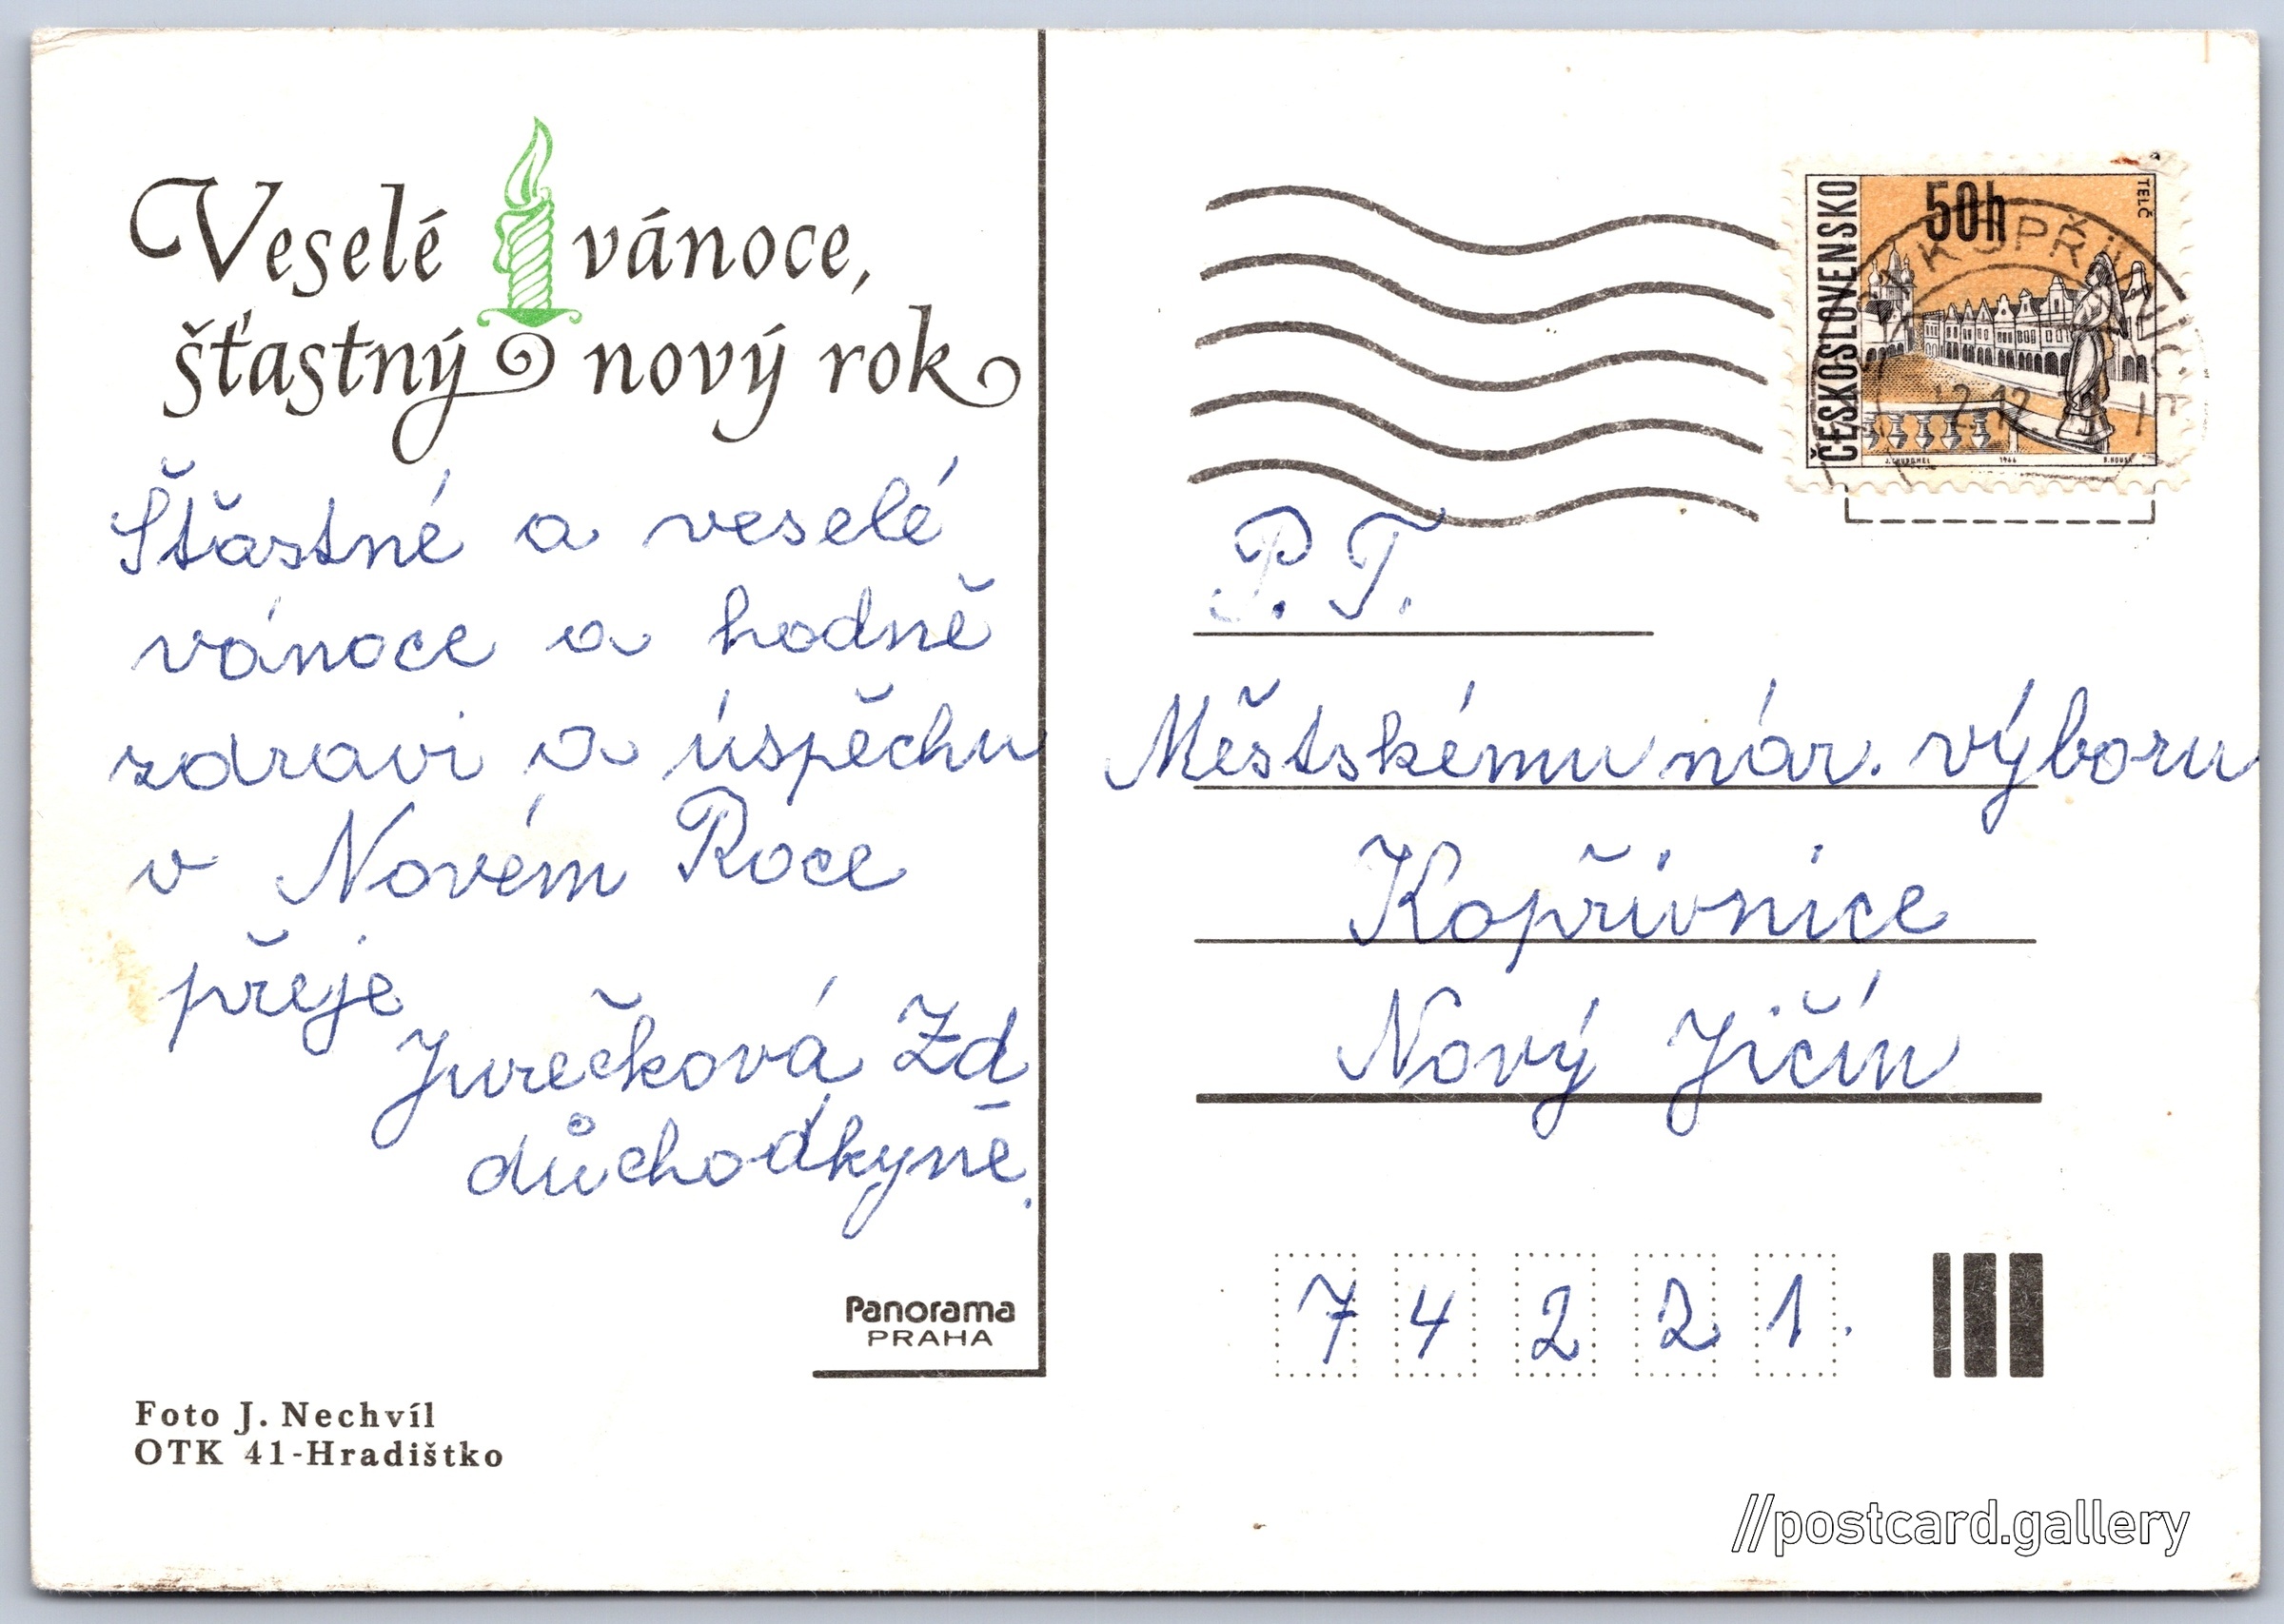 Veselé vánoce,
šťastný nový rok
Šťastné a veselé
vánoce a hodně
zdravi a úspěchu
v Novém Roce
přeje
Jurečková Zd
důchodkyně.
Panorama
PRAHA
Foto J. Nechvíl
OTK 41-Hradištko
ČESKOSLOVENSKO
50h
TELČ
1966
KOPŘIVNICE
12.12.
P. T.
Městskému nár. výboru
Kopřivnice
Nový Jičín
7 4 2 2 1.
//postcard.gallery